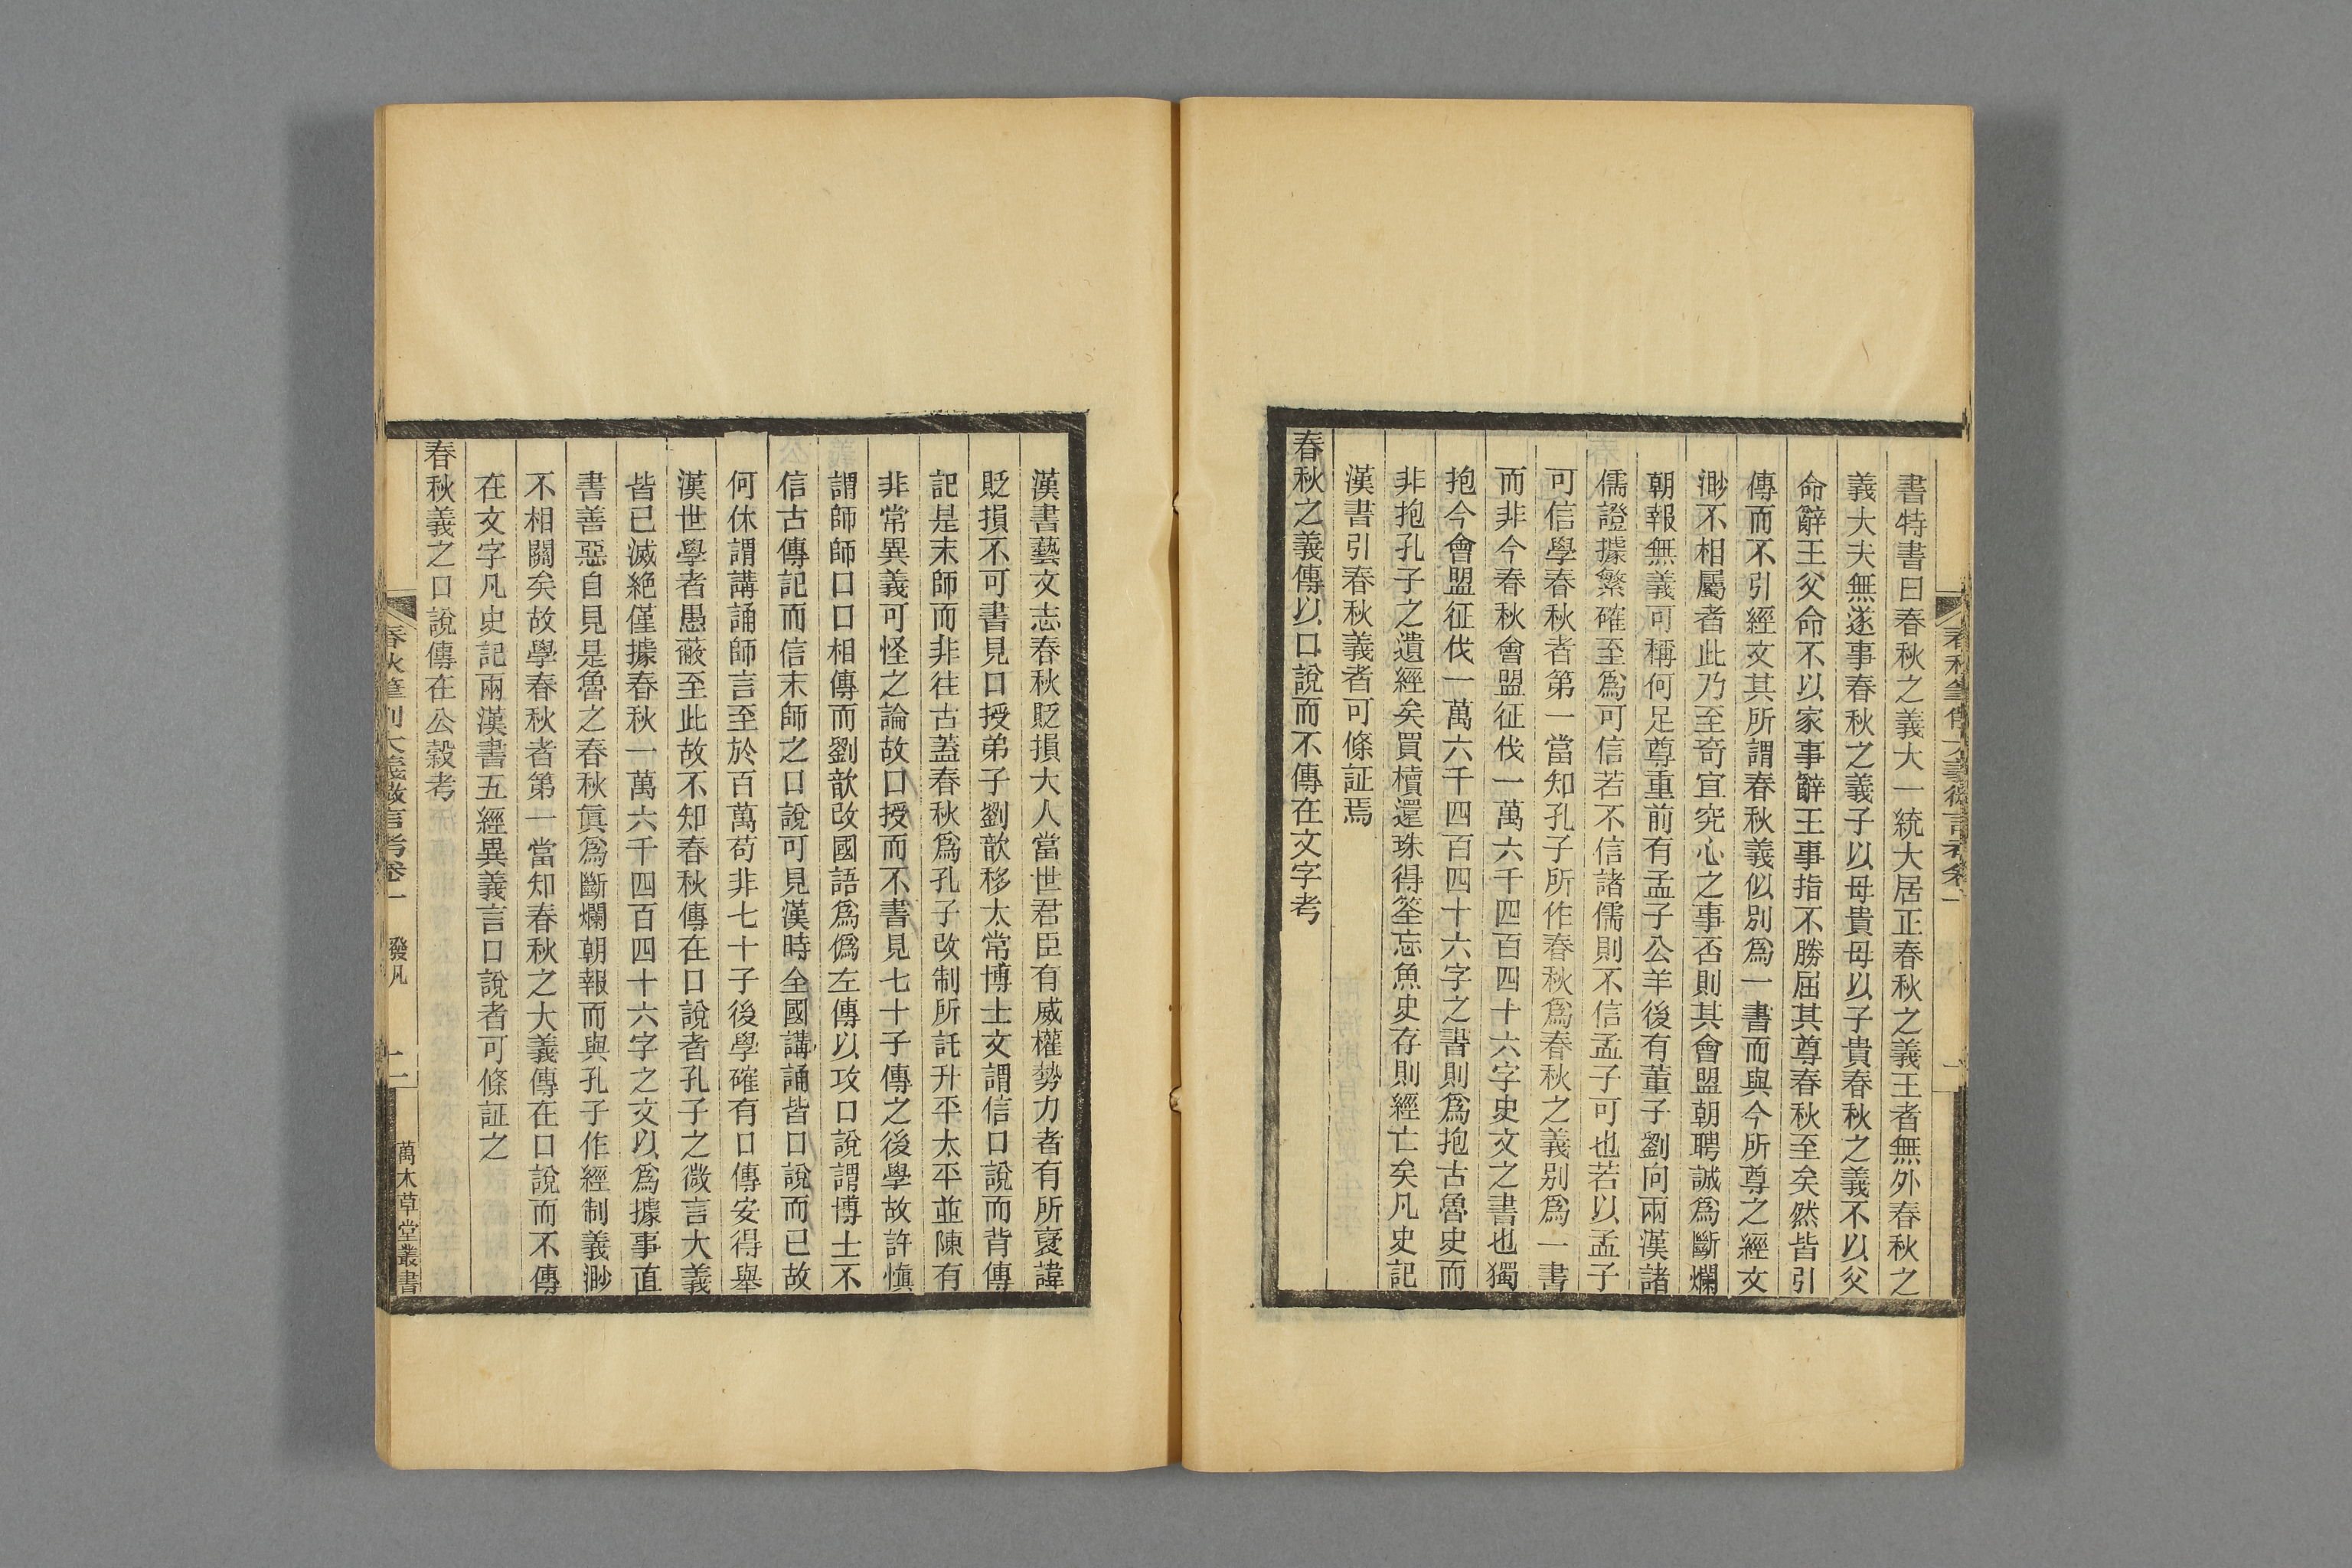 書特書曰春秋之義大一統大居正春秋之義王者無外春秋之
義大夫無遂事春秋之義子以母貴母以子貴春秋之義不以父
命辭王父命不以家事辭王事指不勝屈其尊春秋至矣然皆引
傳而不引經文其所謂春秋義似別爲一書而與今所尊之經文
渺不相屬者此乃至奇宜究心之事否則其會盟朝聘誠爲斷爛
朝報無義可稱何足尊重前有孟子公羊後有董子劉向兩漢諸
儒證據繁確至爲可信若不信諸儒則不信孟子可也若以孟子
可信學春秋者第一當知孔子所作春秋爲春秋之義別爲一書
而非今春秋會盟征伐一萬六千四百四十六字史文之書也獨
抱今會盟征伐一萬六千四百四十六字之書則爲抱古魯史而
非抱孔子之遺經矣買櫝還珠得筌忘魚史存則經亡矣凡史記
漢書引春秋義者可條証焉
春秋之義傳以口說而不傳在文字考
漢書藝文志春秋貶損大人當世君臣有威權勢力者有所襃諱
貶損不可書見口授弟子劉歆移太常博士文謂信口說而背傳
記是末師而非往古蓋春秋爲孔子改制所託升平太平並陳有
非常異義可怪之論故口授而不書見七十子傳之後學故許愼
謂師師口口相傳而劉歆改國語爲僞左傳以攻口說謂博士不
信古傳記而信末師之口說可見漢時全國講誦皆口說而已故
何休謂講誦師言至於百萬苟非七十子後學確有口傳安得舉
漢世學者愚蔽至此故不知春秋傳在口說者孔子之微言大義
皆已滅絕僅據春秋一萬六千四百四十六字之文以爲據事直
書善惡自見是魯之春秋眞爲斷爛朝報而與孔子作經制義渺
不相關矣故學春秋者第一當知春秋之大義傳在口說而不傳
在文字凡史記兩漢書五經異義言口說者可條証之
春秋義之口說傳在公穀考
春秋筆削大義微言考卷一 發凡 二 萬木草堂叢書